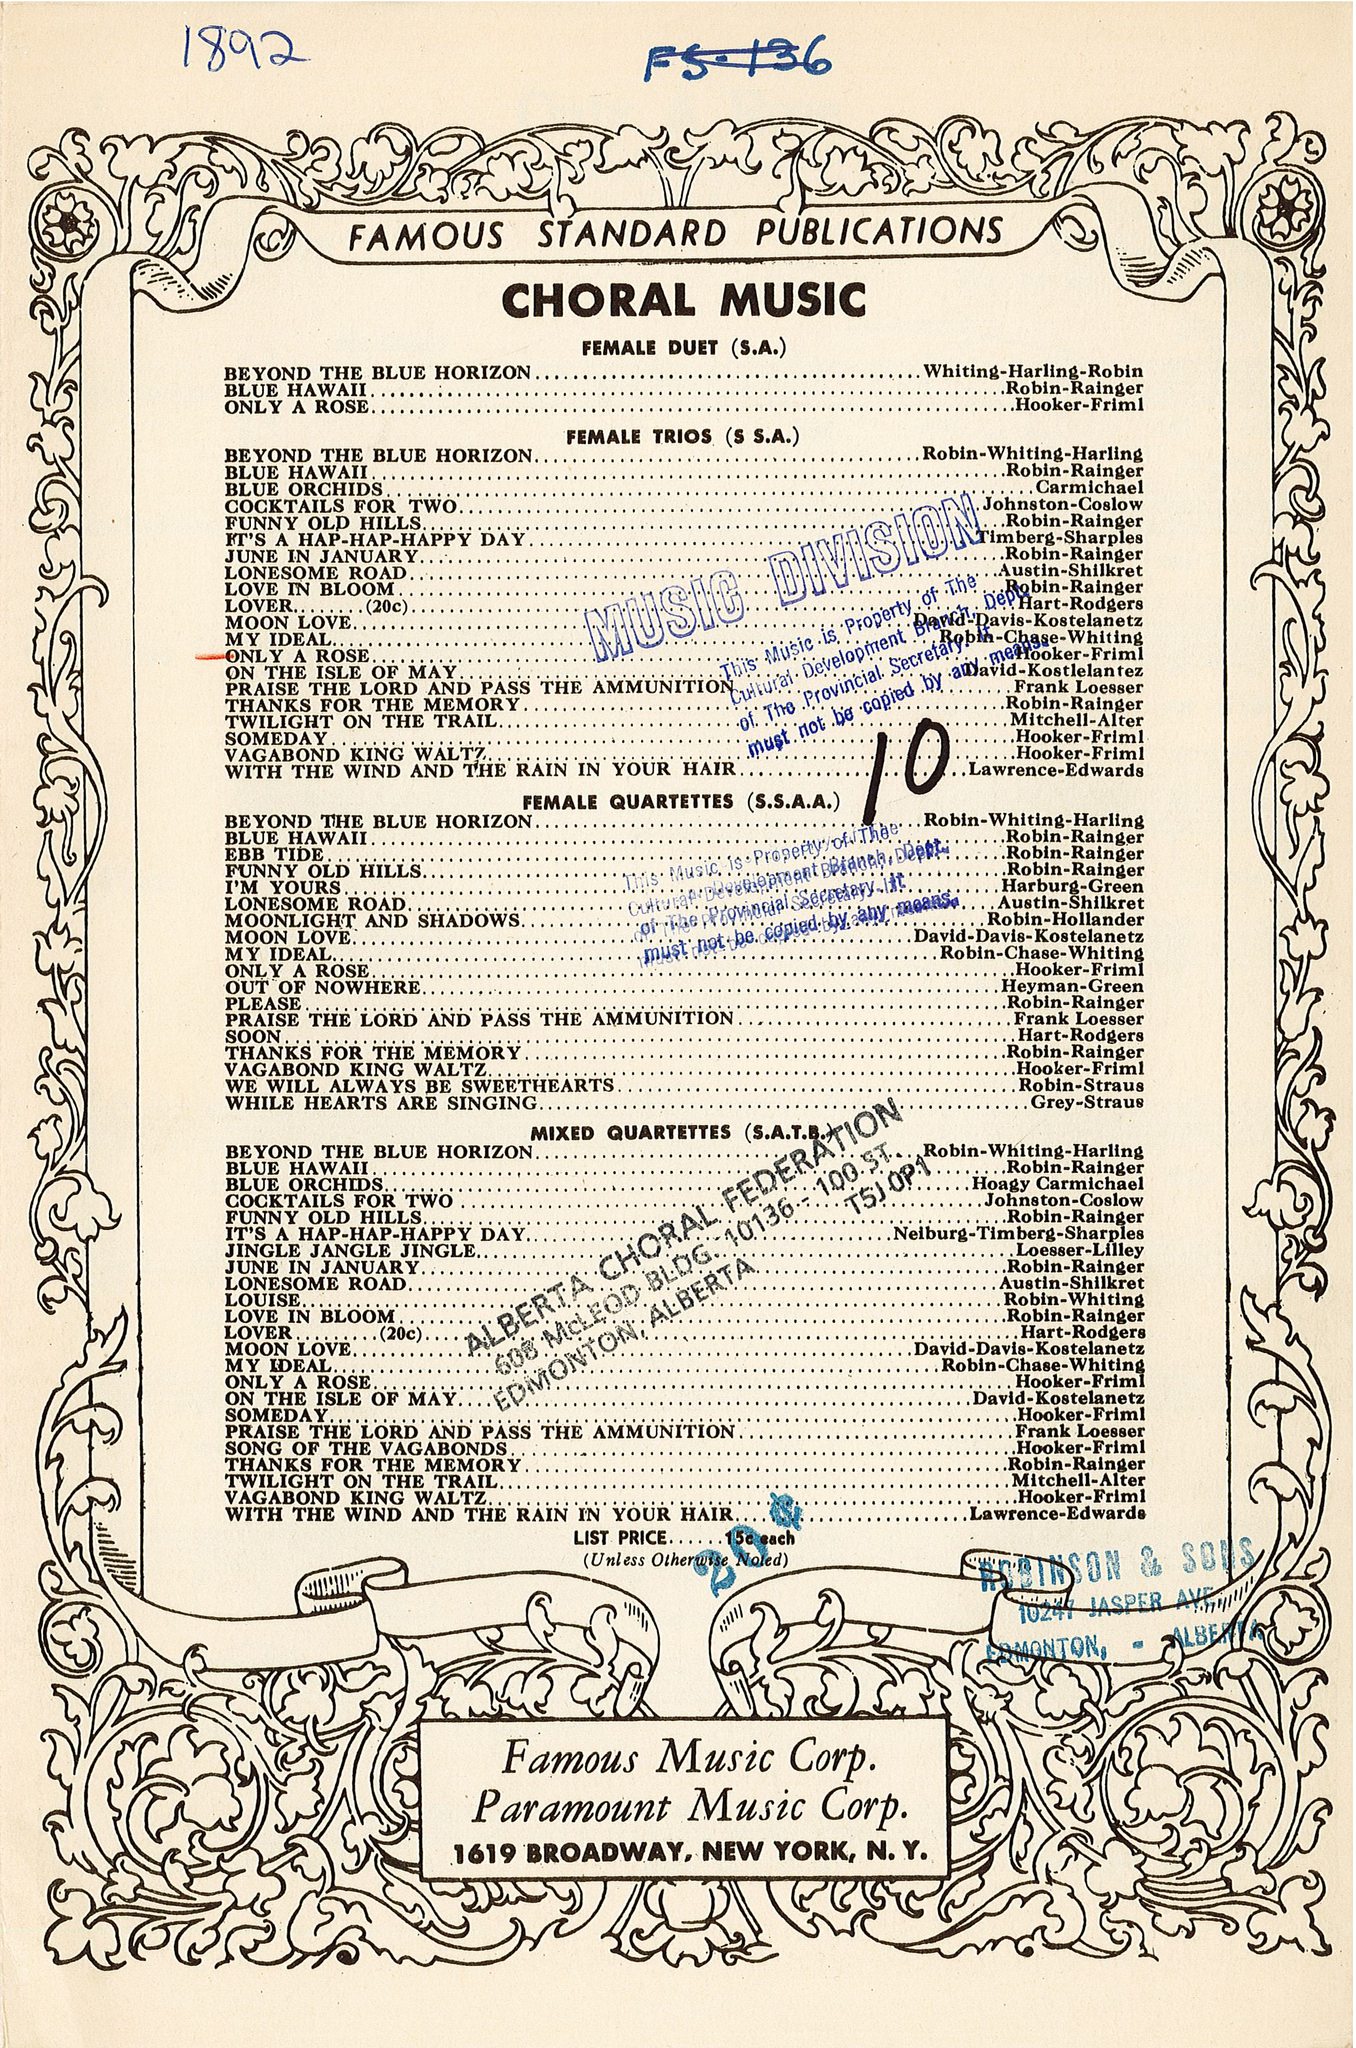 1892
FS-136
FAMOUS STANDARD PUBLICATIONS
CHORAL MUSIC
FEMALE DUET (S.A.)
BEYOND THE BLUE HORIZON........Whiting-Harling-Robin
BLUE HAWAII........Robin-Rainger
ONLY A ROSE........Hooker-Friml
FEMALE TRIOS (S S.A.)
BEYOND THE BLUE HORIZON........Robin-Whiting-Harling
BLUE HAWAII........Robin-Rainger
BLUE ORCHIDS........Carmichael
COCKTAILS FOR TWO........Johnston-Coslow
FUNNY OLD HILLS........Robin-Rainger
IT'S A HAP-HAP-HAPPY DAY........Timberg-Sharples
JUNE IN JANUARY........Robin-Rainger
LONESOME ROAD........Austin-Shilkret
LOVE IN BLOOM........Robin-Rainger
LOVER........(20c)........Hart-Rodgers
MOON LOVE........David-Davis-Kostelanetz
MY IDEAL........Robin-Chase-Whiting
ONLY A ROSE........Hooker-Friml
ON THE ISLE OF MAY........David-Kostlelantez
PRAISE THE LORD AND PASS THE AMMUNITION........Frank Loesser
THANKS FOR THE MEMORY........Robin-Rainger
TWILIGHT ON THE TRAIL........Mitchell-Alter
SOMEDAY........Hooker-Friml
VAGABOND KING WALTZ........Hooker-Friml
WITH THE WIND AND THE RAIN IN YOUR HAIR........Lawrence-Edwards
MUSIC DIVISION
This Music is Property of The
Cultural Development Branch, Dept.
of The Provincial Secretary. It
must not be copied by any means.
10
FEMALE QUARTETTES (S.S.A.A.)
BEYOND THE BLUE HORIZON........Robin-Whiting-Harling
BLUE HAWAII........Robin-Rainger
EBB TIDE........Robin-Rainger
FUNNY OLD HILLS........Robin-Rainger
I'M YOURS........Harburg-Green
LONESOME ROAD........Austin-Shilkret
MOONLIGHT AND SHADOWS........Robin-Hollander
MOON LOVE........David-Davis-Kostelanetz
MY IDEAL........Robin-Chase-Whiting
ONLY A ROSE........Hooker-Friml
OUT OF NOWHERE........Heyman-Green
PLEASE........Robin-Rainger
PRAISE THE LORD AND PASS THE AMMUNITION........Frank Loesser
SOON........Hart-Rodgers
THANKS FOR THE MEMORY........Robin-Rainger
VAGABOND KING WALTZ........Hooker-Friml
WE WILL ALWAYS BE SWEETHEARTS........Robin-Straus
WHILE HEARTS ARE SINGING........Grey-Straus
This Music is Property of The
Cultural Development Branch, Dept.
of The Provincial Secretary. It
must not be copied by any means.
MIXED QUARTETTES (S.A.T.B.)
BEYOND THE BLUE HORIZON........Robin-Whiting-Harling
BLUE HAWAII........Robin-Rainger
BLUE ORCHIDS........Hoagy Carmichael
COCKTAILS FOR TWO........Johnston-Coslow
FUNNY OLD HILLS........Robin-Rainger
IT'S A HAP-HAP-HAPPY DAY........Neiburg-Timberg-Sharples
JINGLE JANGLE JINGLE........Loesser-Lilley
JUNE IN JANUARY........Robin-Rainger
LONESOME ROAD........Austin-Shilkret
LOUISE........Robin-Whiting
LOVE IN BLOOM........Robin-Rainger
LOVER........(20c)........Hart-Rodgers
MOON LOVE........David-Davis-Kostelanetz
MY IDEAL........Robin-Chase-Whiting
ONLY A ROSE........Hooker-Friml
ON THE ISLE OF MAY........David-Kostelanetz
SOMEDAY........Hooker-Friml
PRAISE THE LORD AND PASS THE AMMUNITION........Frank Loesser
SONG OF THE VAGABONDS........Hooker-Friml
THANKS FOR THE MEMORY........Robin-Rainger
TWILIGHT ON THE TRAIL........Mitchell-Alter
VAGABOND KING WALTZ........Hooker-Friml
WITH THE WIND AND THE RAIN IN YOUR HAIR........Lawrence-Edwards
ALBERTA CHORAL FEDERATION
608 McLEOD BLDG. 10136 - 100 ST.
EDMONTON, ALBERTA T5J 0P1
LIST PRICE......15c each
(Unless Otherwise Noted)
20¢
ROBINSON & SONS
10247 JASPER AVE.
EDMONTON, - ALBERTA
Famous Music Corp.
Paramount Music Corp.
1619 BROADWAY, NEW YORK, N. Y.